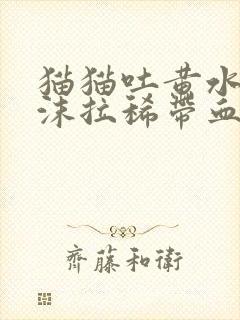 猫猫吐黄水
沫拉稀带血
齊藤和衛